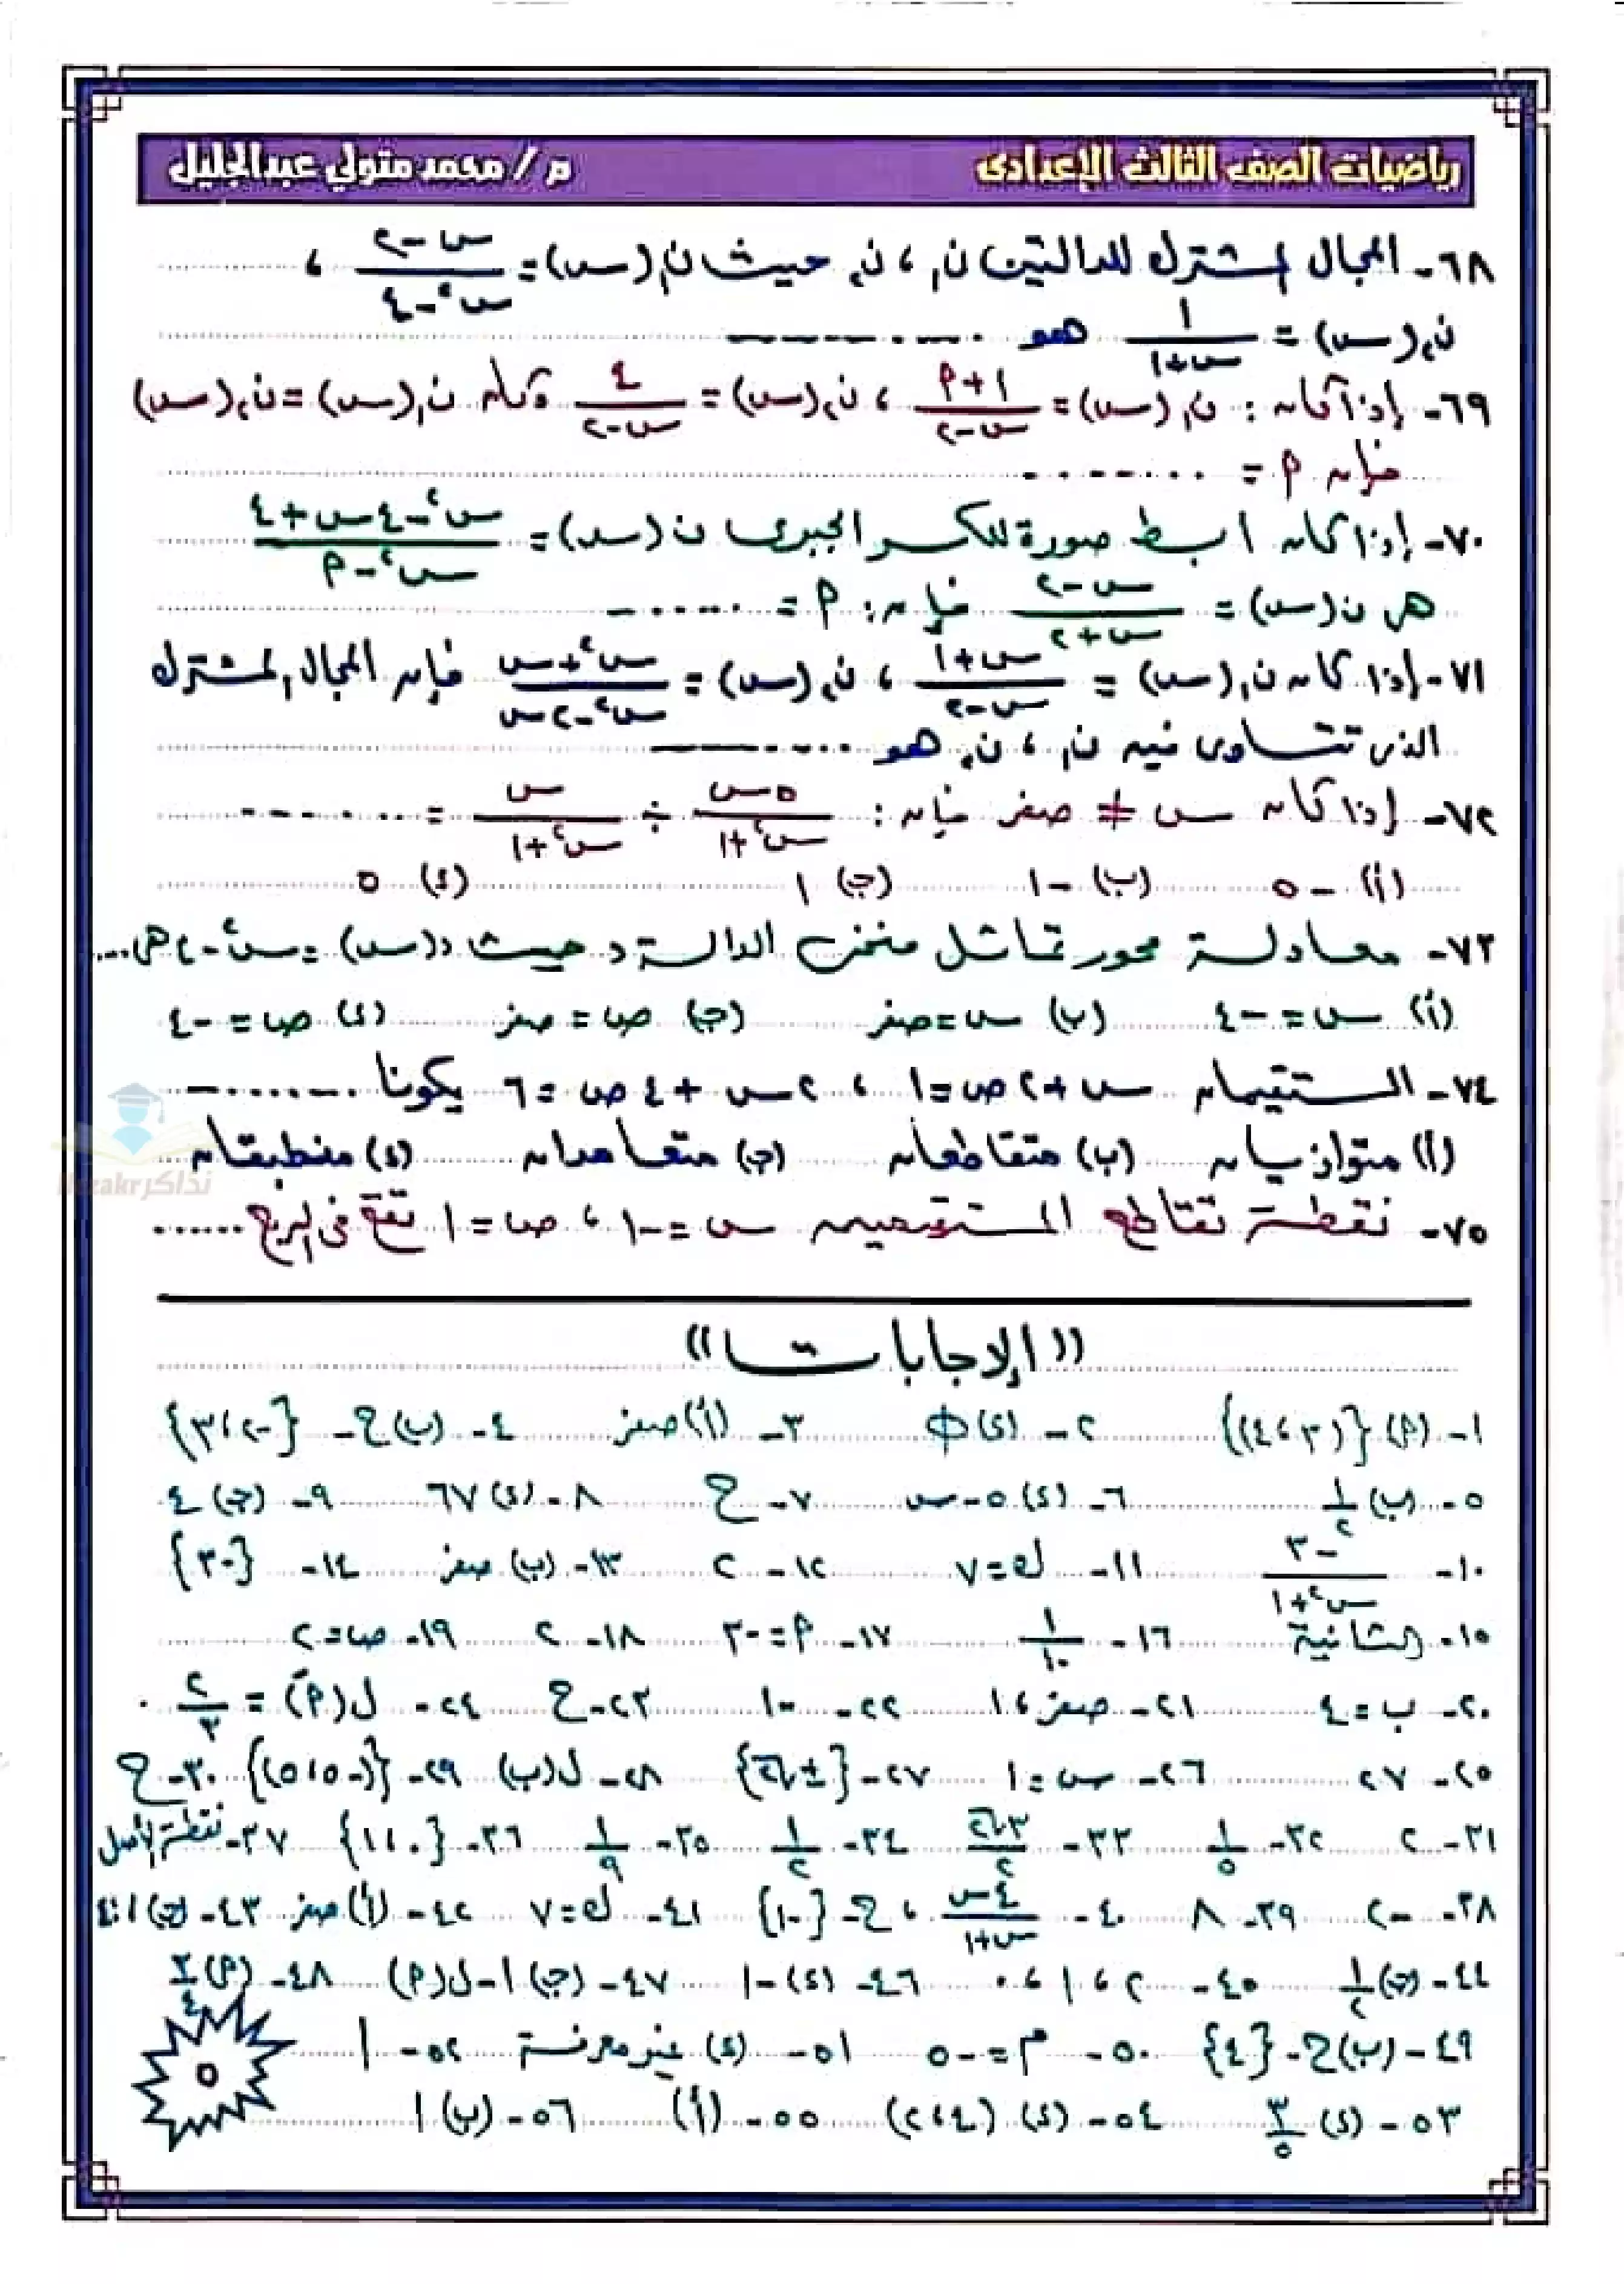 رياضيات الصف الثالث الإعدادى م / محمد متولي عبدالجليل
٦٨- المجال المشترك للدالتين ن١ ، ن٢ حيث ن١(س) = (س-٢)/(س²-٤) ،
ن٢(س) = ١/(س+١) هو ..........
٦٩- إذا كان : ن١(س) = (١+م)/(س-٢) ، ن٢(س) = ٤/(س-٢) وكان ن١(س) = ن٢(س)
فإن م = ..........
٧٠- إذا كان ابسط صورة للكسر الجبرى ن(س) = (س²-٤س+٤)/(س²-م)
هى ن(س) = (س-٢)/(س+٢) فإن : م = ..........
٧١- إذا كان ن١(س) = (س+١)/(س-٢) ، ن٢(س) = (س²+س)/(س²-٢س) فإن المجال المشترك
الذى تتساوى فيه ن١ ، ن٢ هو ..........
٧٢- إذا كان س ≠ صفر فإن : ٥س/(س²+١) ÷ س/(س²+١) = ..........
(أ) -٥ (ب) -١ (ج) ١ (د) ٥
٧٣- معادلة محور تماثل منحنى الدالة د حيث د(س) = س²-٤ هى ....
(أ) س = -٤ (ب) س = صفر (ج) ص = صفر (د) ص = -٤
٧٤- المستقيمان س+٢ص=١ ، ٢س+٤ص=٦ يكونا ..........
(أ) متوازيان (ب) متقاطعان (ج) متعامدان (د) منطبقان
٧٥- نقطة تقاطع المستقيمين س = -١ ، ص = ١ تقع فى الربع ......
((الإجابات))
١- (م) {(٣،٤)} ٢- (د) Φ ٣- (أ) صفر ٤- (ب) ح - {-٢،٣}
٥- (ب) ١/٢ ٦- (د) ٥-س ٧- ح ٨- (د) ٦٧ ٩- (ج) ٤
١٠- (٣-)/(س²+١) ١١- ك=٧ ١٢- ٢ ١٣- (ب) صفر ١٤- {-٣}
١٥- الثانية ١٦- ١/١٠ ١٧- م=-٣ ١٨- ٢ ١٩- ص=٢
٢٠- ب=٤ ٢١- صفر،١ ٢٢- -١ ٢٣- ح ٢٤- ل(مَ) = ٢/٣
٢٥- ٢٧ ٢٦- س=١ ٢٧- {±√٢} ٢٨- ل(ب) ٢٩- {(-٥،٥)} ٣٠- ح
٣١- ٢ ٣٢- ١/٥ ٣٣- ٣√٢/٢ ٣٤- ١/٢ ٣٥- ١/٩ ٣٦- {٠،١} ٣٧- نقطة الأصل
٣٨- -٢ ٣٩- ٨ ٤٠- ٤س/(س+١) ، ح - {-١} ٤١- ك=٧ ٤٢- (أ) صفر ٤٣- (ج) ١:٤
٤٤- (ج) ١/٢ ٤٥- ٢،١،٠ ٤٦- (د) -١ ٤٧- (ج) ١-ل(م) ٤٨- (م) ٣/٤
٤٩- (ب) ح - {٤} ٥٠- م=-٥ ٥١- (د) غير معرفة ٥٢- ١
٥٣- (د) ٣/٥ ٥٤- (د) (٢،٤) ٥٥- (أ) ٥٦- (ب) ١
٥
نذاكر